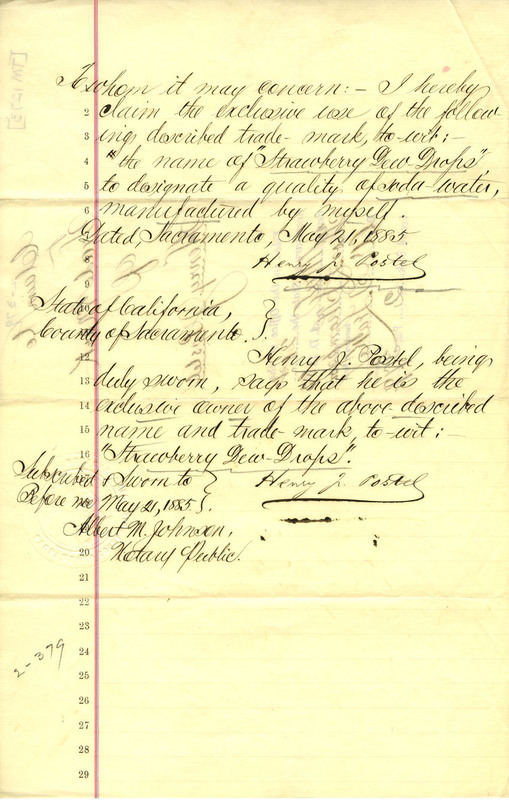 To whom it may concern:– I hereby
2 claim the exclusive use of the follow
3 ing described trade-mark, to-wit:–
4 "the name of "Strawberry Dew-Drops"
5 to designate a quality of soda-water,
6 manufactured by myself.
Dated Sacramento, May 21, 1885
8 Henry J. Postel
9
State of California, }
County of Sacramento. }
12 Henry J. Postel, being
13 duly sworn, says that he is the
14 exclusive owner of the above-described
15 name and trade-mark, to-wit:–
16 "Strawberry Dew-Drops".
Subscribed & Sworn to } Henry J. Postel
Before me May 21, 1885 }.
Albert M. Johnson,
20 Notary Public.
21
22
23
2-379
24
25
26
27
28
29